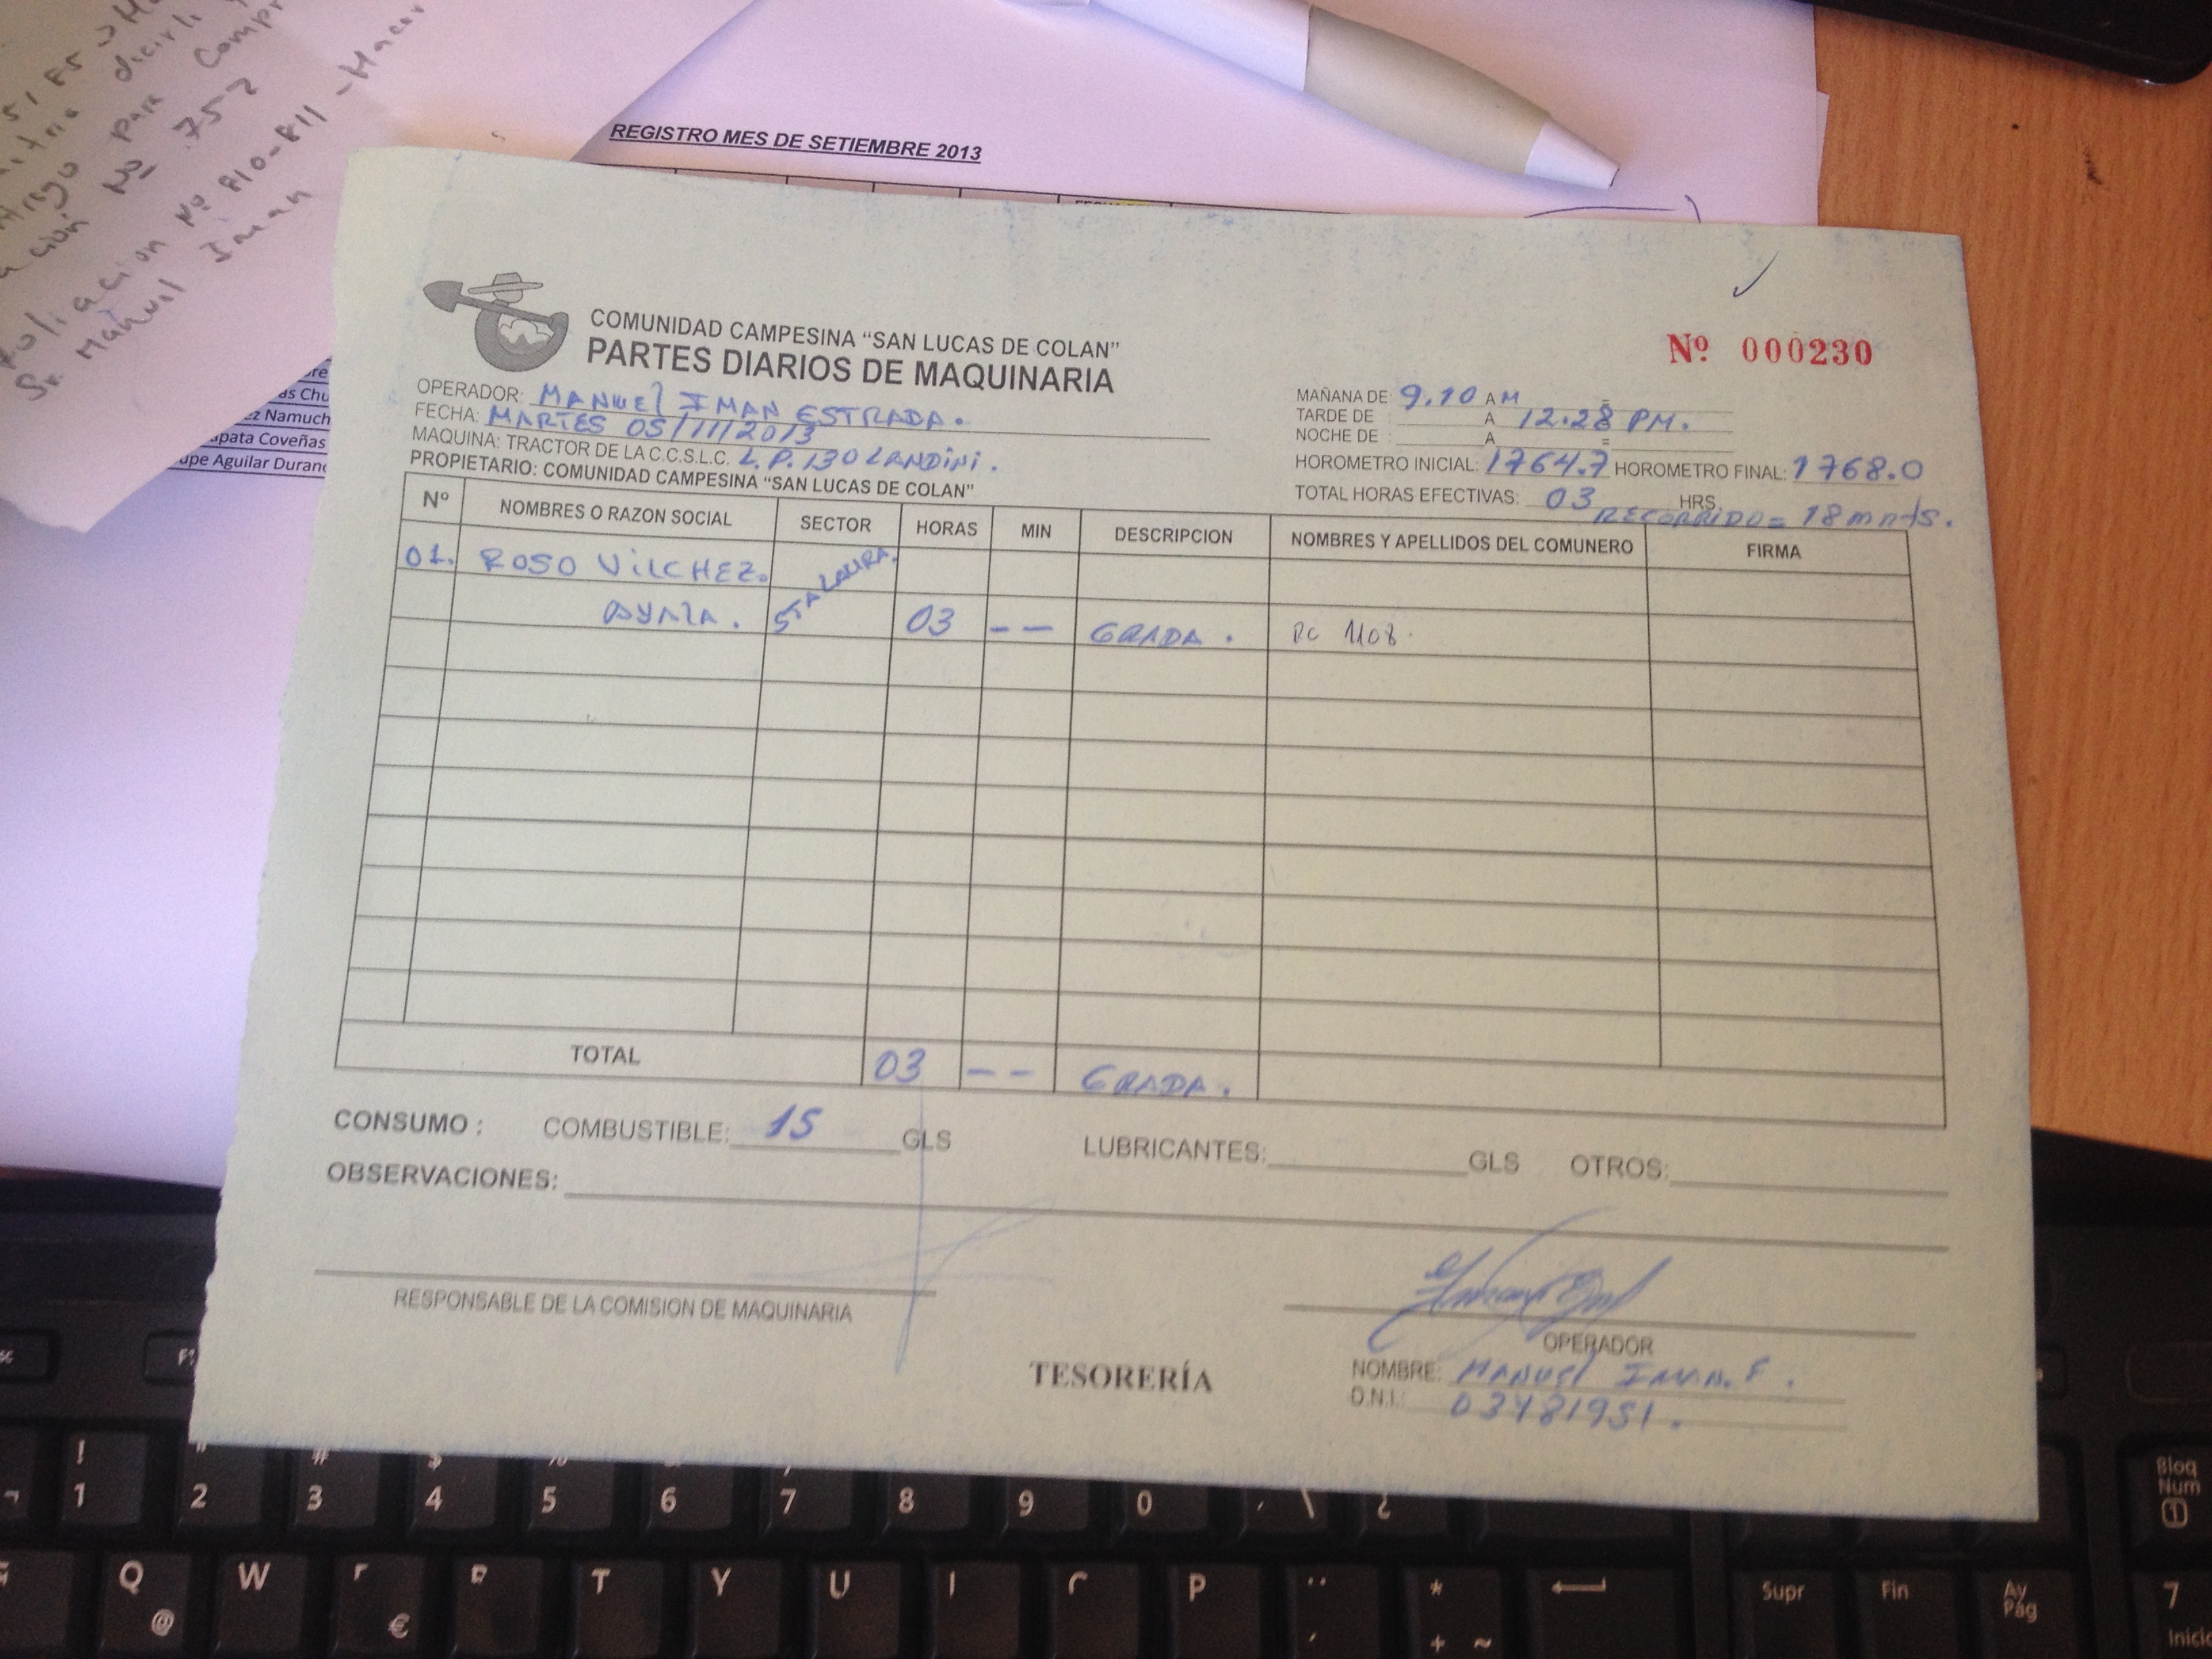 REGISTRO MES DE SETIEMBRE 2013
decirle
para Compr
Nº 757
Nº 810-811 - Macar
Sr. Manuel Iman
as Chu
ez Namuch
apata Coveñas
upe Aguilar Duran
COMUNIDAD CAMPESINA “SAN LUCAS DE COLAN”
PARTES DIARIOS DE MAQUINARIA
Nº 000230
OPERADOR: MANUEL IMAN ESTRADA.
FECHA: MARTES 05/11/2013
MAQUINA: TRACTOR DE LA C.C.S.L.C. L.P. 130 LANDINI.
PROPIETARIO: COMUNIDAD CAMPESINA “SAN LUCAS DE COLAN”
MAÑANA DE 9.10 AM =
TARDE DE A 12.28 PM.
NOCHE DE : A =
HOROMETRO INICIAL: 1764.7 HOROMETRO FINAL: 1768.0
TOTAL HORAS EFECTIVAS: 03 HRS.
RECORRIDO = 18 mnts.
Nº NOMBRES O RAZON SOCIAL SECTOR HORAS MIN DESCRIPCION NOMBRES Y APELLIDOS DEL COMUNERO FIRMA
01. ROSO VILCHEZ. STA LAURA.
AYALA. 03 -- GRADA. RC 1108.
TOTAL 03 -- GRADA.
CONSUMO : COMBUSTIBLE: 15 GLS LUBRICANTES: GLS OTROS:
OBSERVACIONES:
RESPONSABLE DE LA COMISION DE MAQUINARIA
OPERADOR
TESORERÍA
NOMBRE: MANUEL IMAN. E.
D.N.I.: 03481951.
! 1 " 2 # 3 $ 4 % 5 & 6 7 8 9 0
Q @ W € T Y U I P * + ~
Supr Fin Av Pág
Bloq Num
7 Inicio